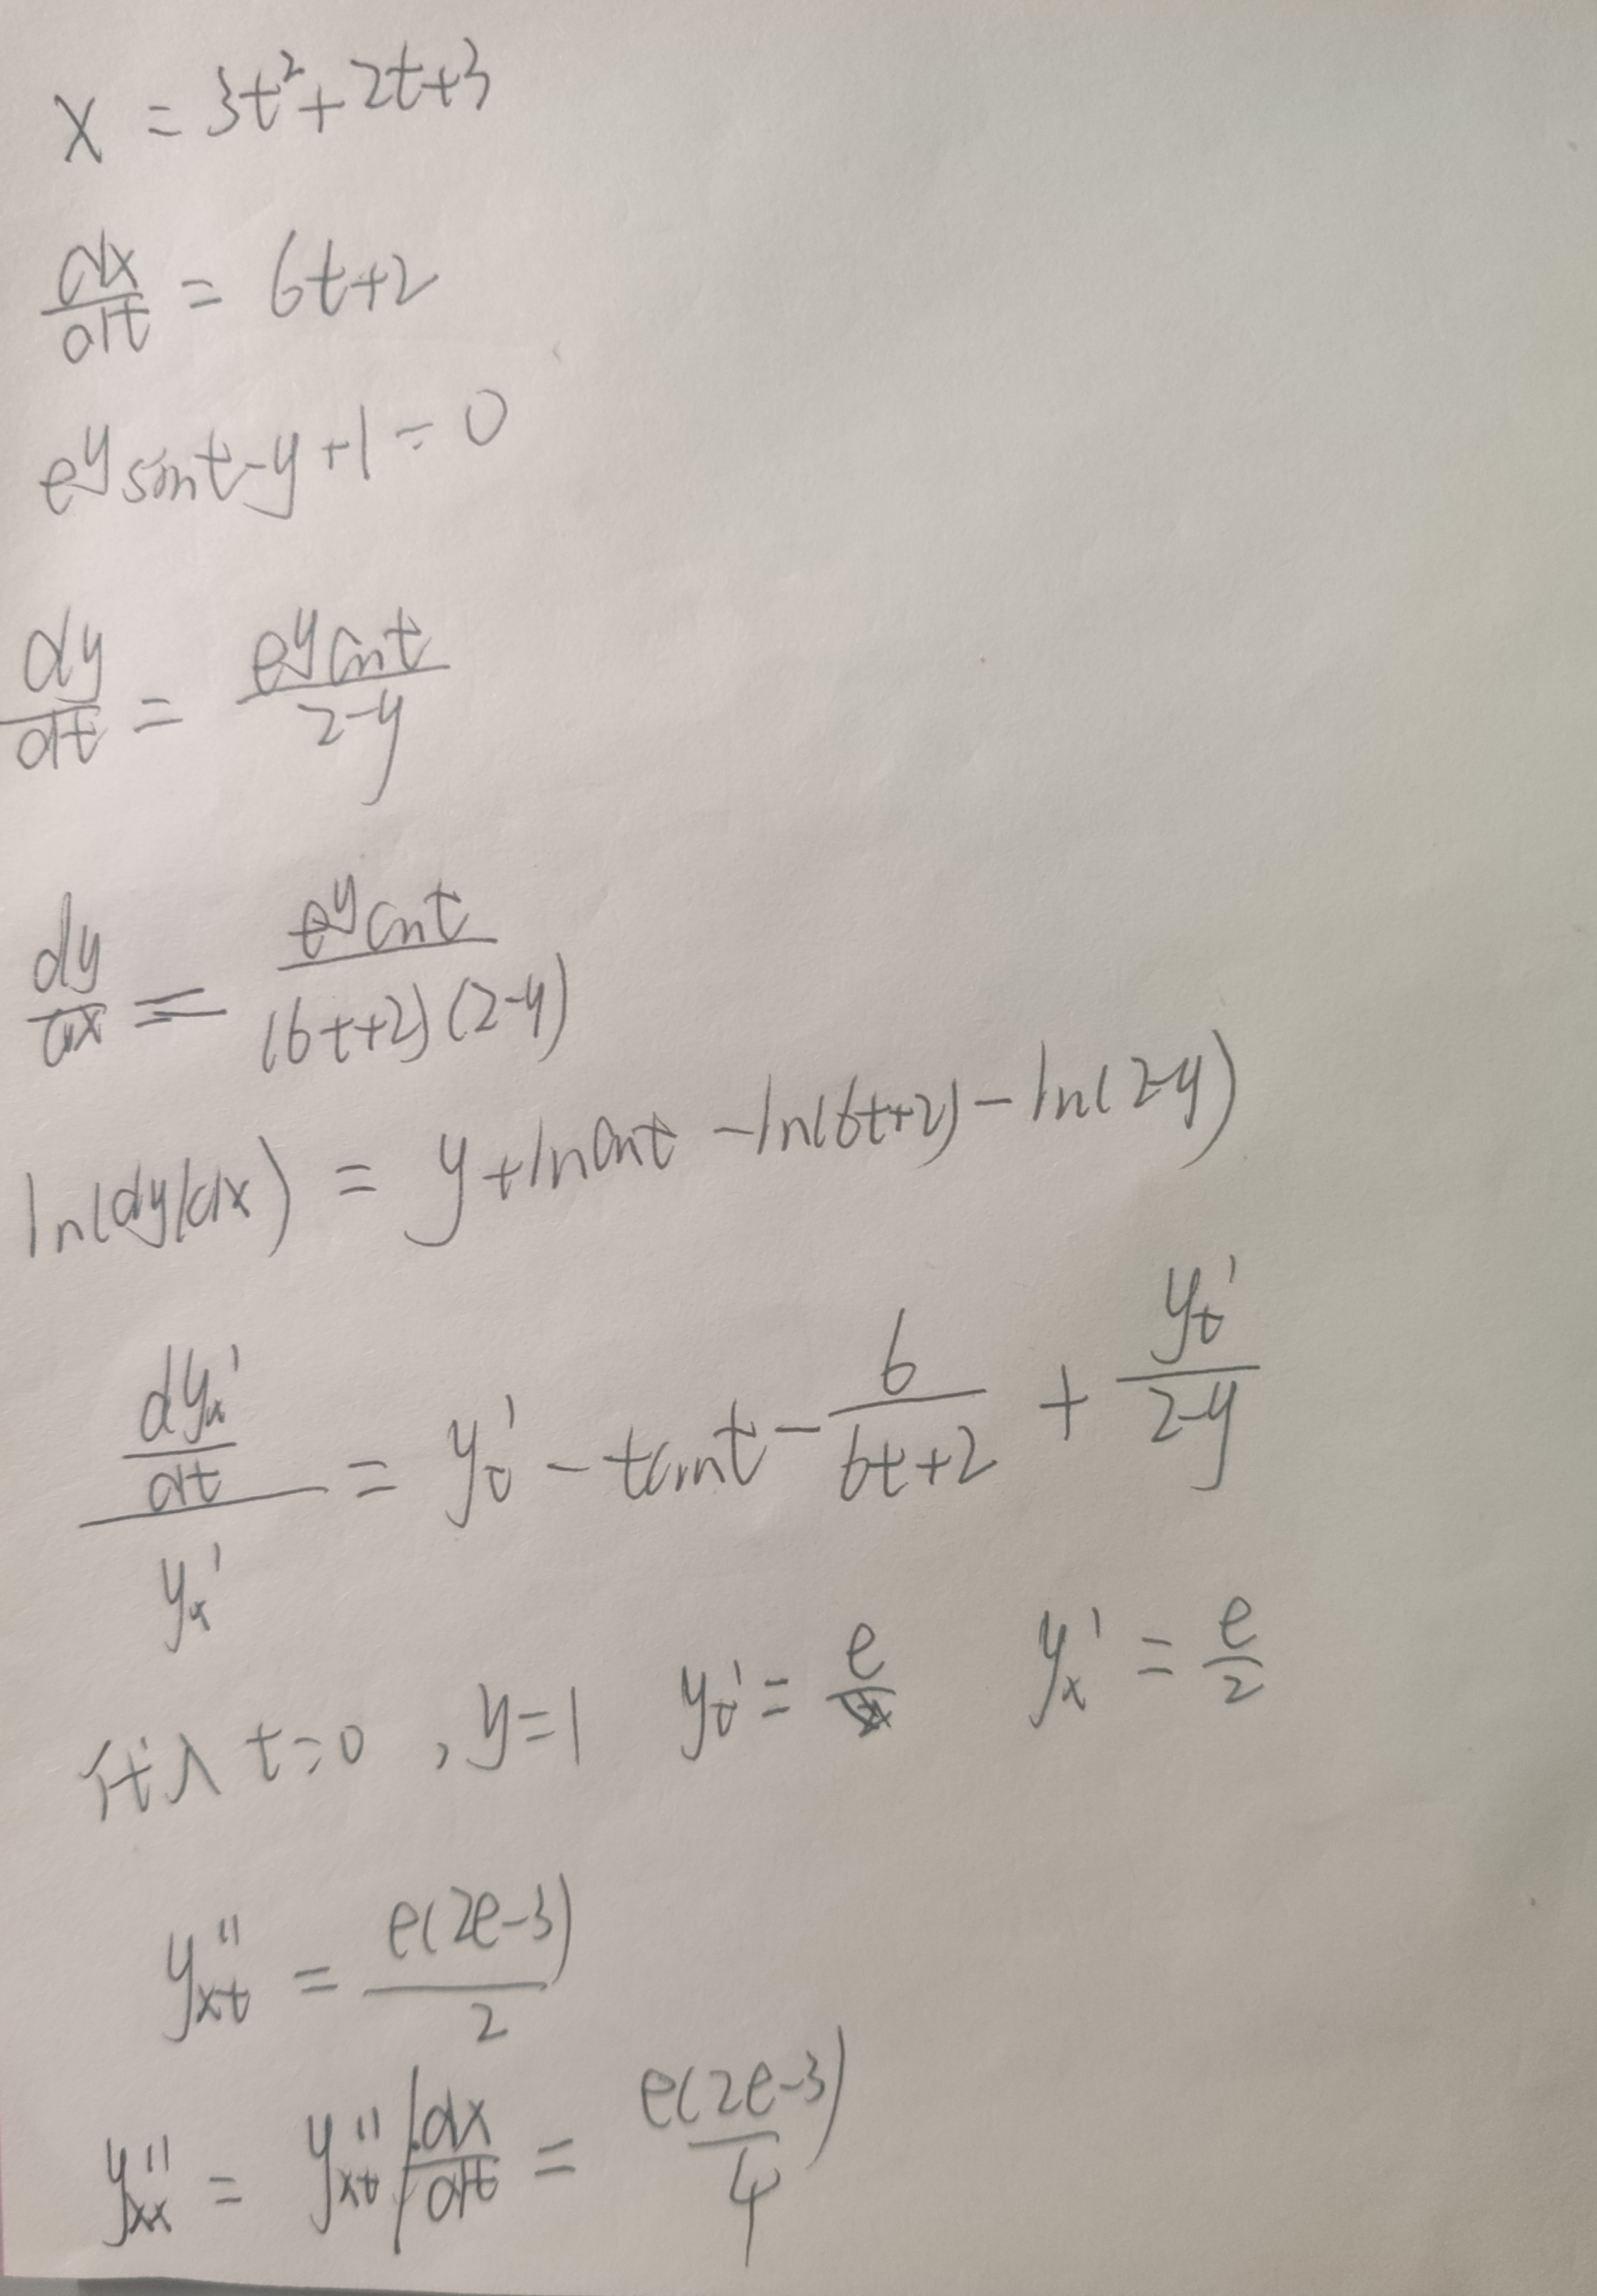 x = 3t²+2t+3
dx/dt = 6t+2
e^y sint-y+1=0
dy/dt = e^y cost/(2-y)
dy/dx = e^y cost/((6t+2)(2-y))
ln(dy/dx) = y+lncost-ln(6t+2)-ln(2-y)
(dy_x'/dt)/y_x' = y_t'-tant-6/(6t+2)+y_t'/(2-y)
代入 t=0,y=1 y_t'=e y_x'=e/2
y_xt''=e(2e-3)/2
y_xx''=y_xt''/(dx/dt)=e(2e-3)/4